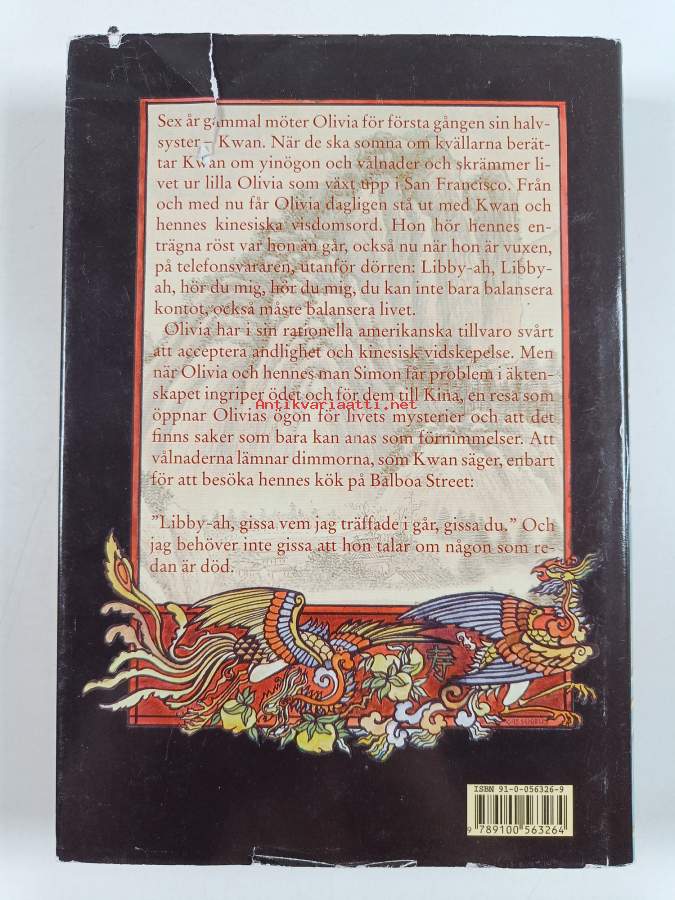 Sex år gammal möter Olivia för första gången sin halv-
syster – Kwan. När de ska somna om kvällarna berät-
tar Kwan om yinögon och vålnader och skrämmer li-
vet ur lilla Olivia som växt upp i San Francisco. Från
och med nu får Olivia dagligen stå ut med Kwan och
hennes kinesiska visdomsord. Hon hör hennes en-
trägna röst var hon än går, också nu när hon är vuxen,
på telefonsvararen, utanför dörren: Libby-ah, Libby-
ah, hör du mig, hör du mig, du kan inte bara balansera
kontot, också måste balansera livet.
Olivia har i sin rationella amerikanska tillvaro svårt
att acceptera andlighet och kinesisk vidskepelse. Men
när Olivia och hennes man Simon får problem i äkten-
skapet ingriper ödet och för dem till Kina, en resa som
Antikvariaatti.net
öppnar Olivias ögon för livets mysterier och att det
finns saker som bara kan anas som förnimmelser. Att
vålnaderna lämnar dimmorna, som Kwan säger, enbart
för att besöka hennes kök på Balboa Street:
"Libby-ah, gissa vem jag träffade i går, gissa du." Och
jag behöver inte gissa att hon talar om någon som re-
dan är död.
寿
ISBN 91-0-056326-9
9 789100 563264